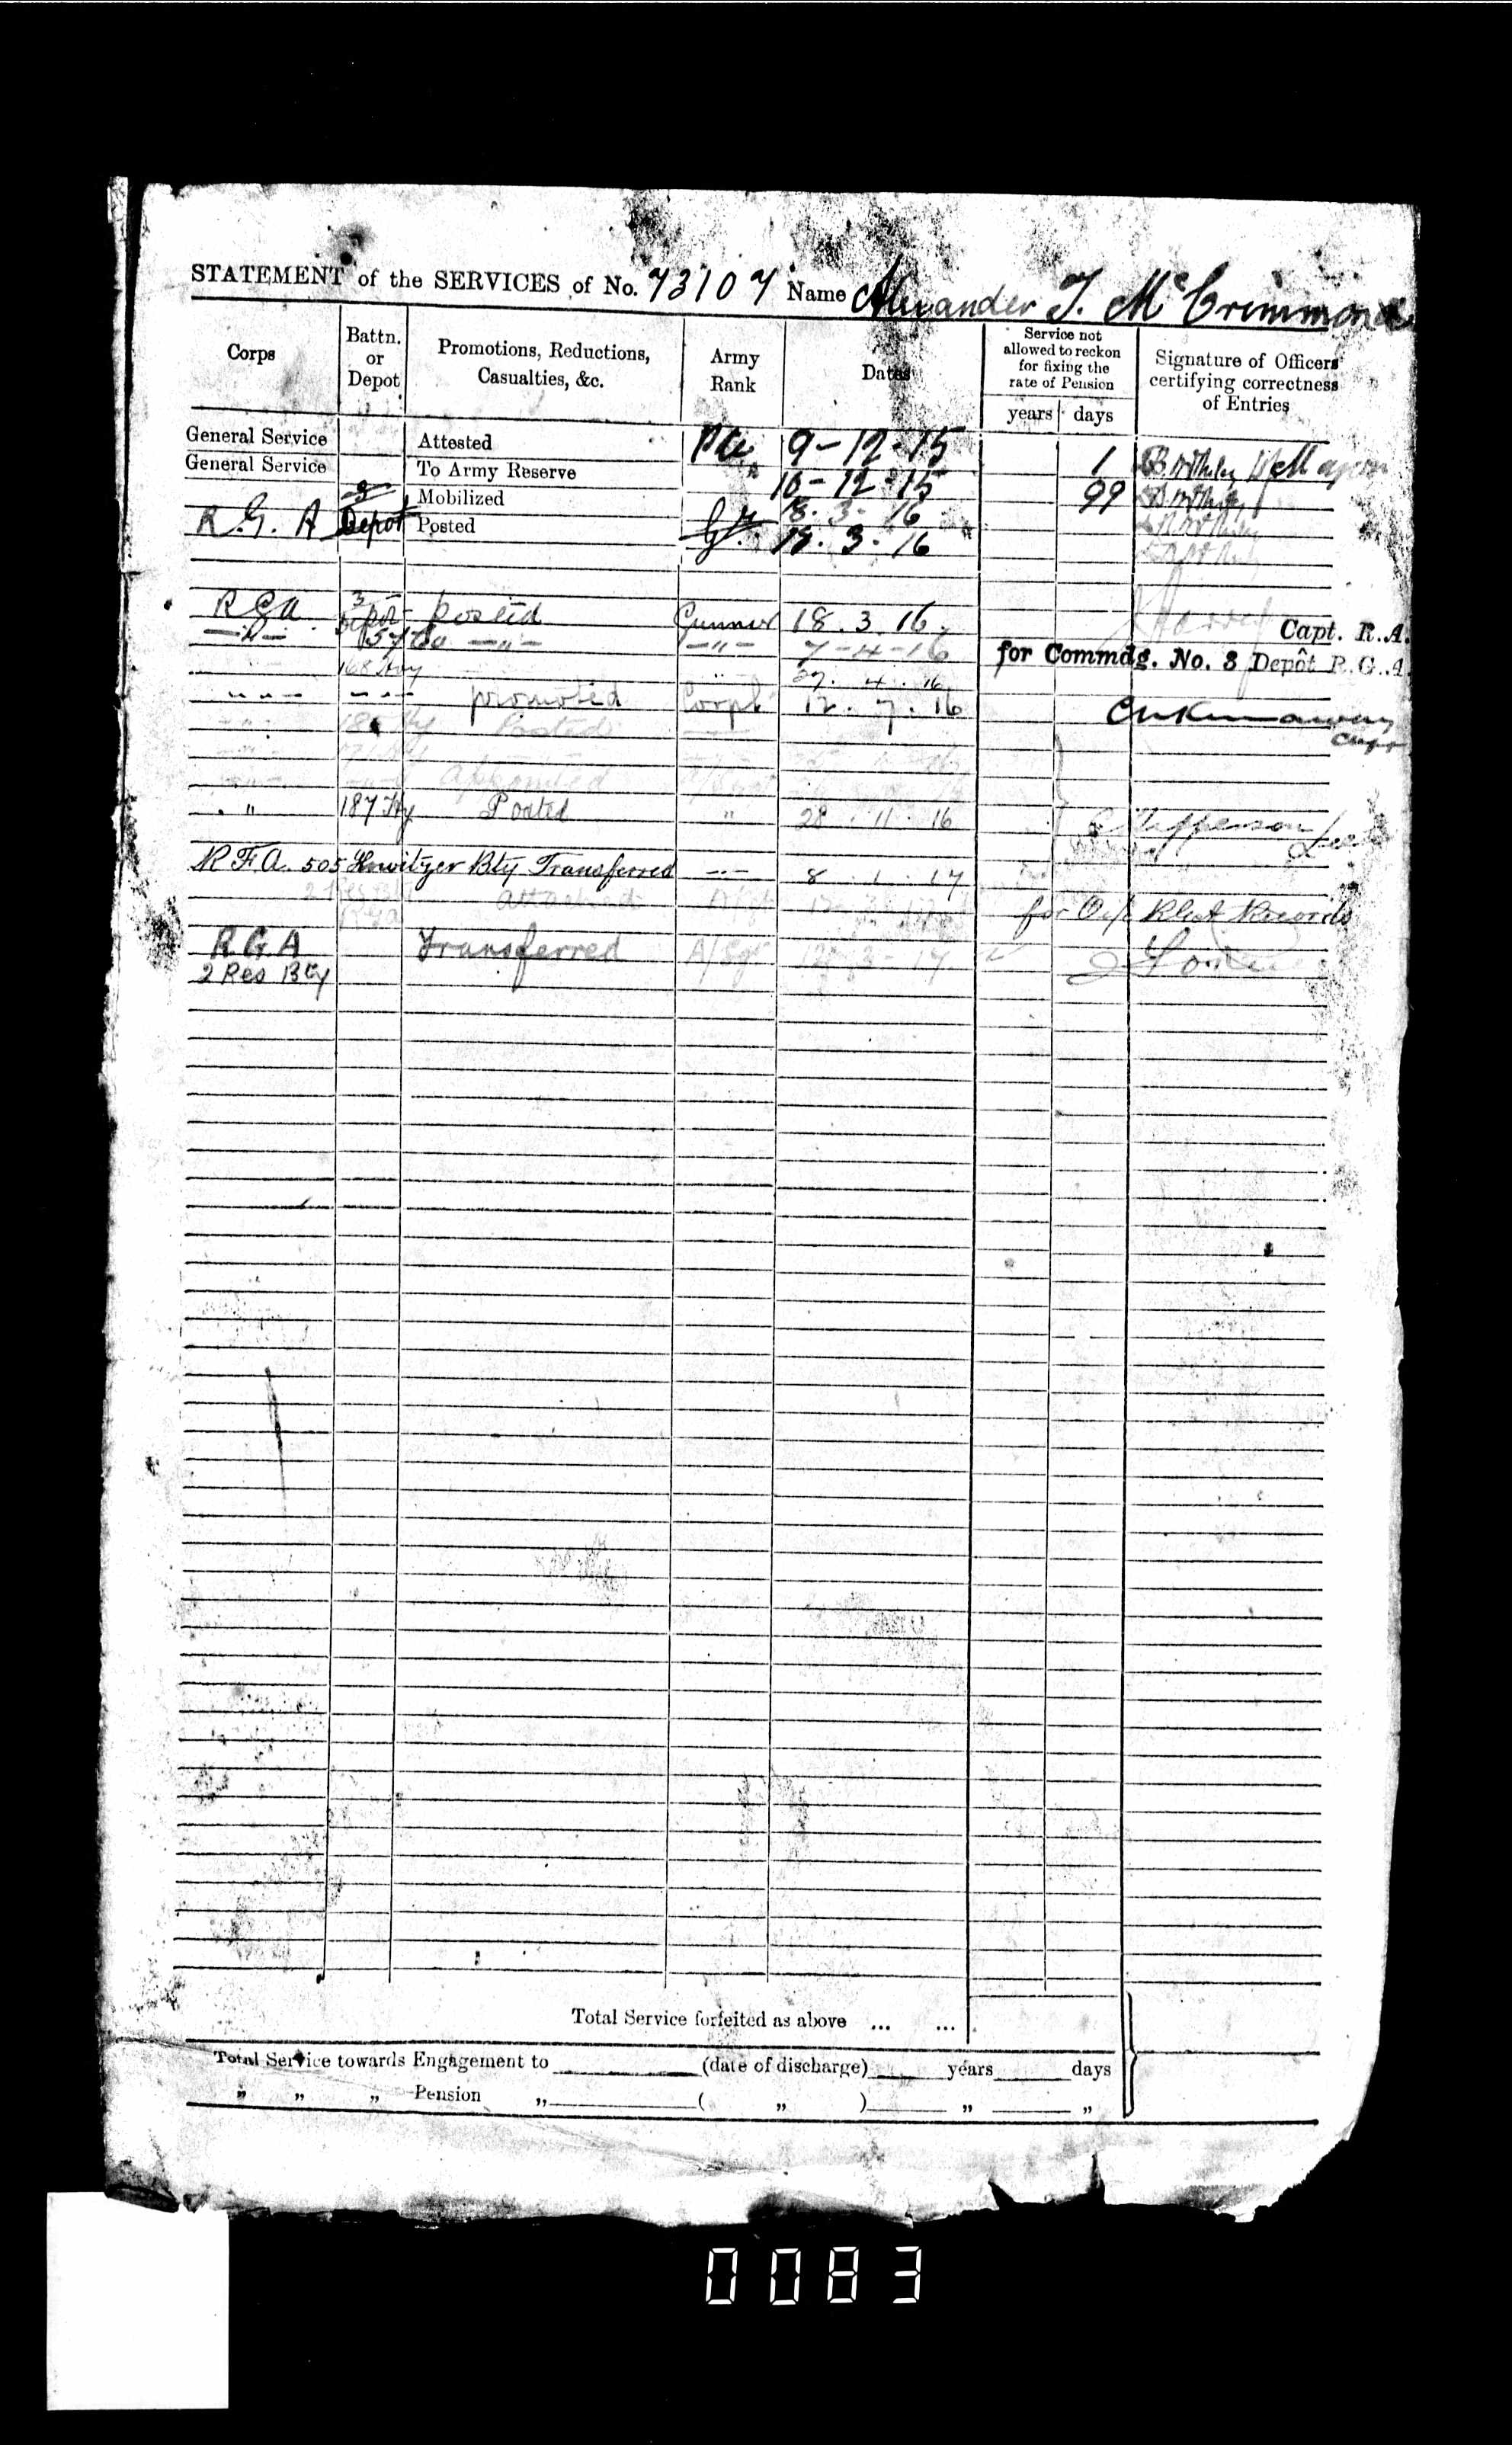 STATEMENT of the SERVICES of No. 73107 Name Alexander J. McCrimmond
Corps
Battn. or Depot
Promotions, Reductions, Casualties, &c.
Army Rank
Dates
Service not allowed to reckon for fixing the rate of Pension
years days
Signature of Officers certifying correctness of Entries
General Service Attested Pte 9-12-15 1
General Service To Army Reserve 10-12-15 99
3 Mobilized 18.3.16
R.G.A. Depot Posted Gr. 18.3.16
RGA 3 Depot posted Gunner 18.3.16
Capt. R.A.
-"- 57 Co -"- -"- 7-4-16
for Commdg. No. 3 Depôt R.G.A.
168 Hvy 27.4.16
-"- -"- promoted Corpl 12.7.16
Capt
-"- Hy Posted
-"-
-"- -"- appointed
" 187 Hy Posted " 28.11.16
R.F.A. 505 Howitzer Bty Transferred -"- 8.1.17
attached
for O i/c Records
R.G.A Transferred A/Sgt 12-3-17
2 Res Bty
Total Service forfeited as above ... ...
Total Service towards Engagement to (date of discharge) years days
„ „ „ Pension „ ( „ ) „ „
0083